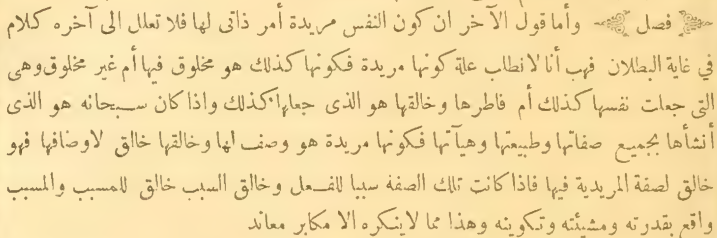 فصل وأما قول الآخر ان كون النفس مريدة أمر ذاتى لها فلا تعلل الى آخره كلام
في غاية البطلان فهب أنا لا نطلب علة كونها مريدة فكونها كذلك هو مخلوق فيها أم غير مخلوق وهى
التى جعلت نفسها كذلك أم فاطرها وخالقها هو الذى جعلها كذلك واذا كان سبحانه هو الذى
أنشأها بجميع صفاتها وطبيعتها وهيآتها فكونها مريدة هو وصف لها وخالقها خالق لاوصافها فهو
خالق لصفة المريدية فيها فاذا كانت تلك الصفة سببا للفعل وخالق السبب خالق للمسبب والمسبب
واقع بقدرته ومشيئته وتكوينه وهذا مما لا ينكره الا مكابر معاند